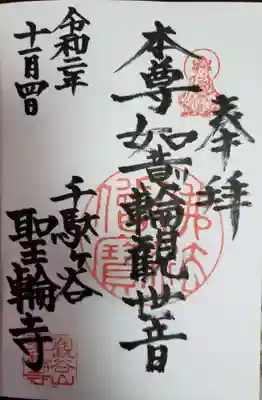 奉拝
本尊如意輪観世音
千駄ヶ谷
聖輪寺
令和二年
十一月四日
佛法僧寶